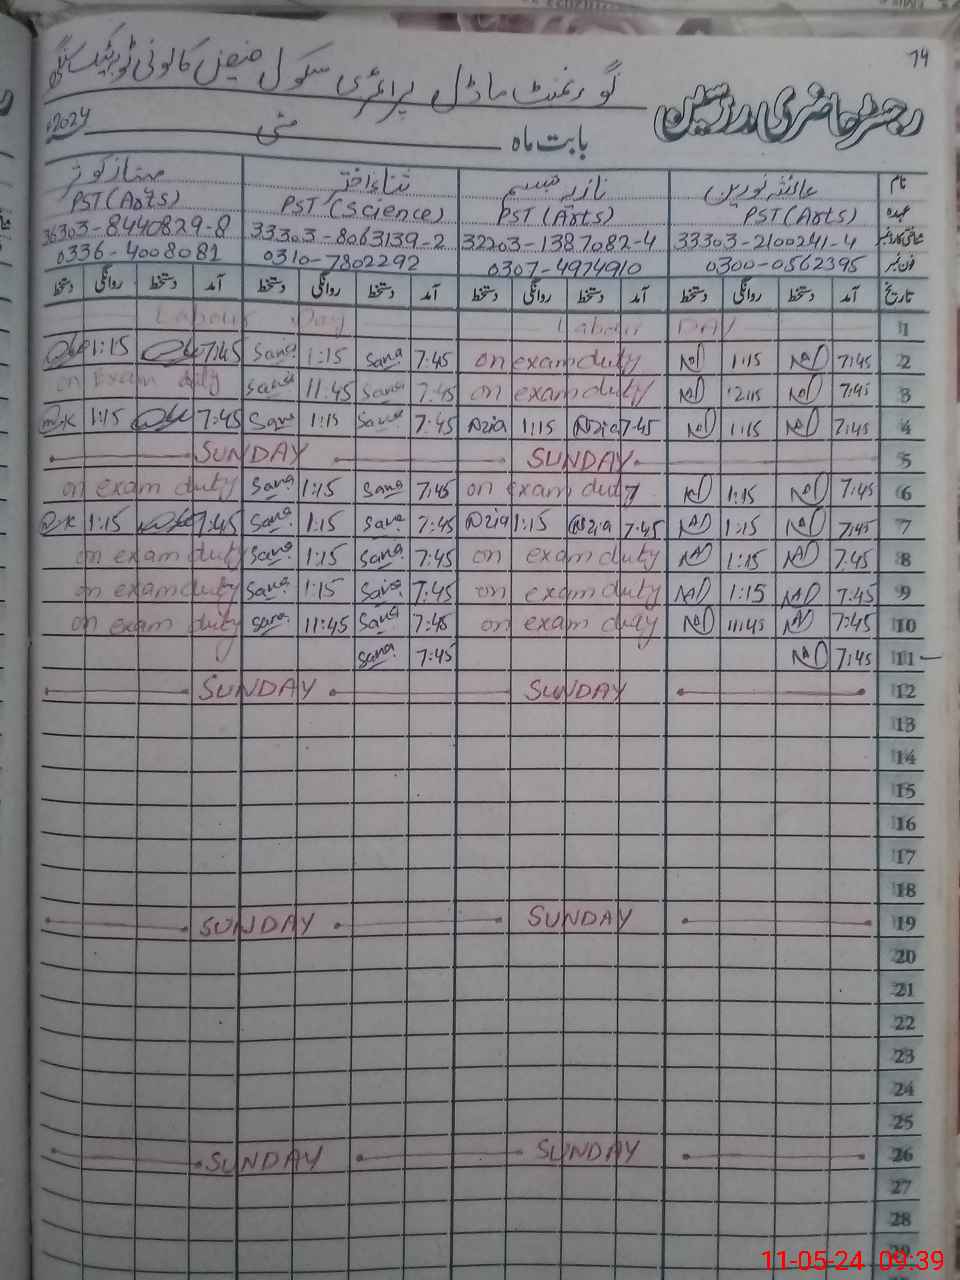 14
گورنمنٹ ماڈل پرائمری سکول فیض کالونی ٹوبہ ٹیک سنگھ
رجسٹر حاضری مدرسین
بابت ماہ مئی 2024ء
نام عائشہ نورین نازیہ تبسم ثناء اختر ممتاز کوثر
عہدہ PST (Arts) PST (Arts) PST (Science) PST (Arts)
شناختی کارڈ نمبر 33303-2100241-4 32203-1387082-4 33303-8063139-2 36303-8440829-8
فون نمبر 0300-0562395 0307-4974910 0310-7802292 0336-4008081
تاریخ آمد دستخط روانگی دستخط آمد دستخط روانگی دستخط آمد دستخط روانگی دستخط آمد دستخط روانگی دستخط
Labour Day Labour DAY 1
1:15 7:45 Sana 1:15 Sana 7:45 on exam duty 1:15 7:45 2
on Exam duty Sana 11:45 Sana 7:45 on exam duty 12:15 7:45 3
1:15 7:45 Sana 1:15 Sana 7:45 Nzia 1:15 Nzia 7:45 1:15 7:45 4
SUNDAY SUNDAY 5
on exam duty Sana 1:15 Sana 7:45 on exam duty 1:15 7:45 6
1:15 7:45 Sana 1:15 Sana 7:45 Nzia 1:15 Nzia 7:45 1:15 7:45 7
on exam duty Sana 1:15 Sana 7:45 on exam duty 1:15 7:45 8
on exam duty Sana 1:15 Sana 7:45 on exam duty 1:15 7:45 9
on exam duty Sana 11:45 Sana 7:45 on exam duty 11:45 7:45 10
Sana 7:45 7:45 11
SUNDAY SUNDAY 12
13
14
15
16
17
18
SUNDAY SUNDAY 19
20
21
22
23
24
25
SUNDAY SUNDAY 26
27
28
29
11-05-24 09:39